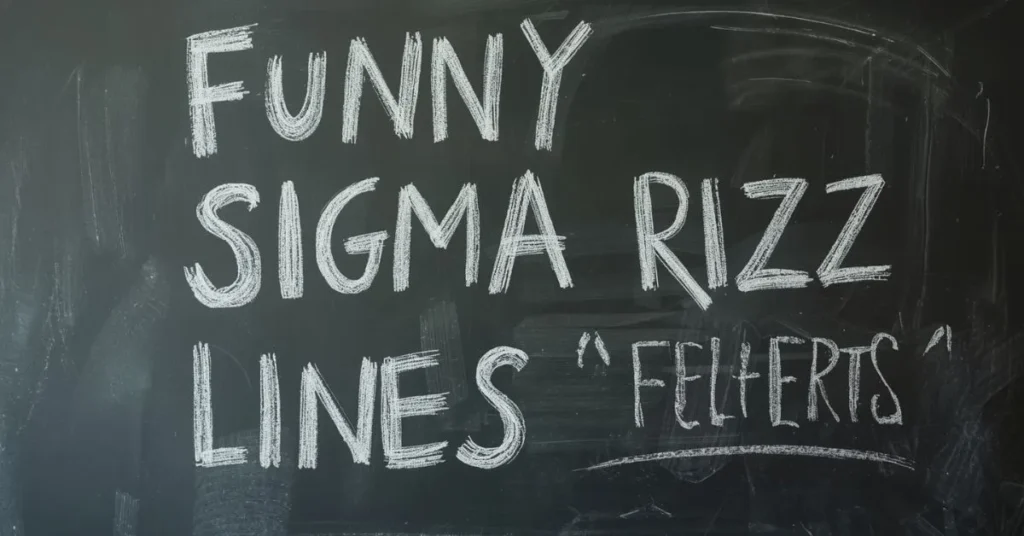 FUNNY
SIGMA RIZZ
LINES "FELTERTS"